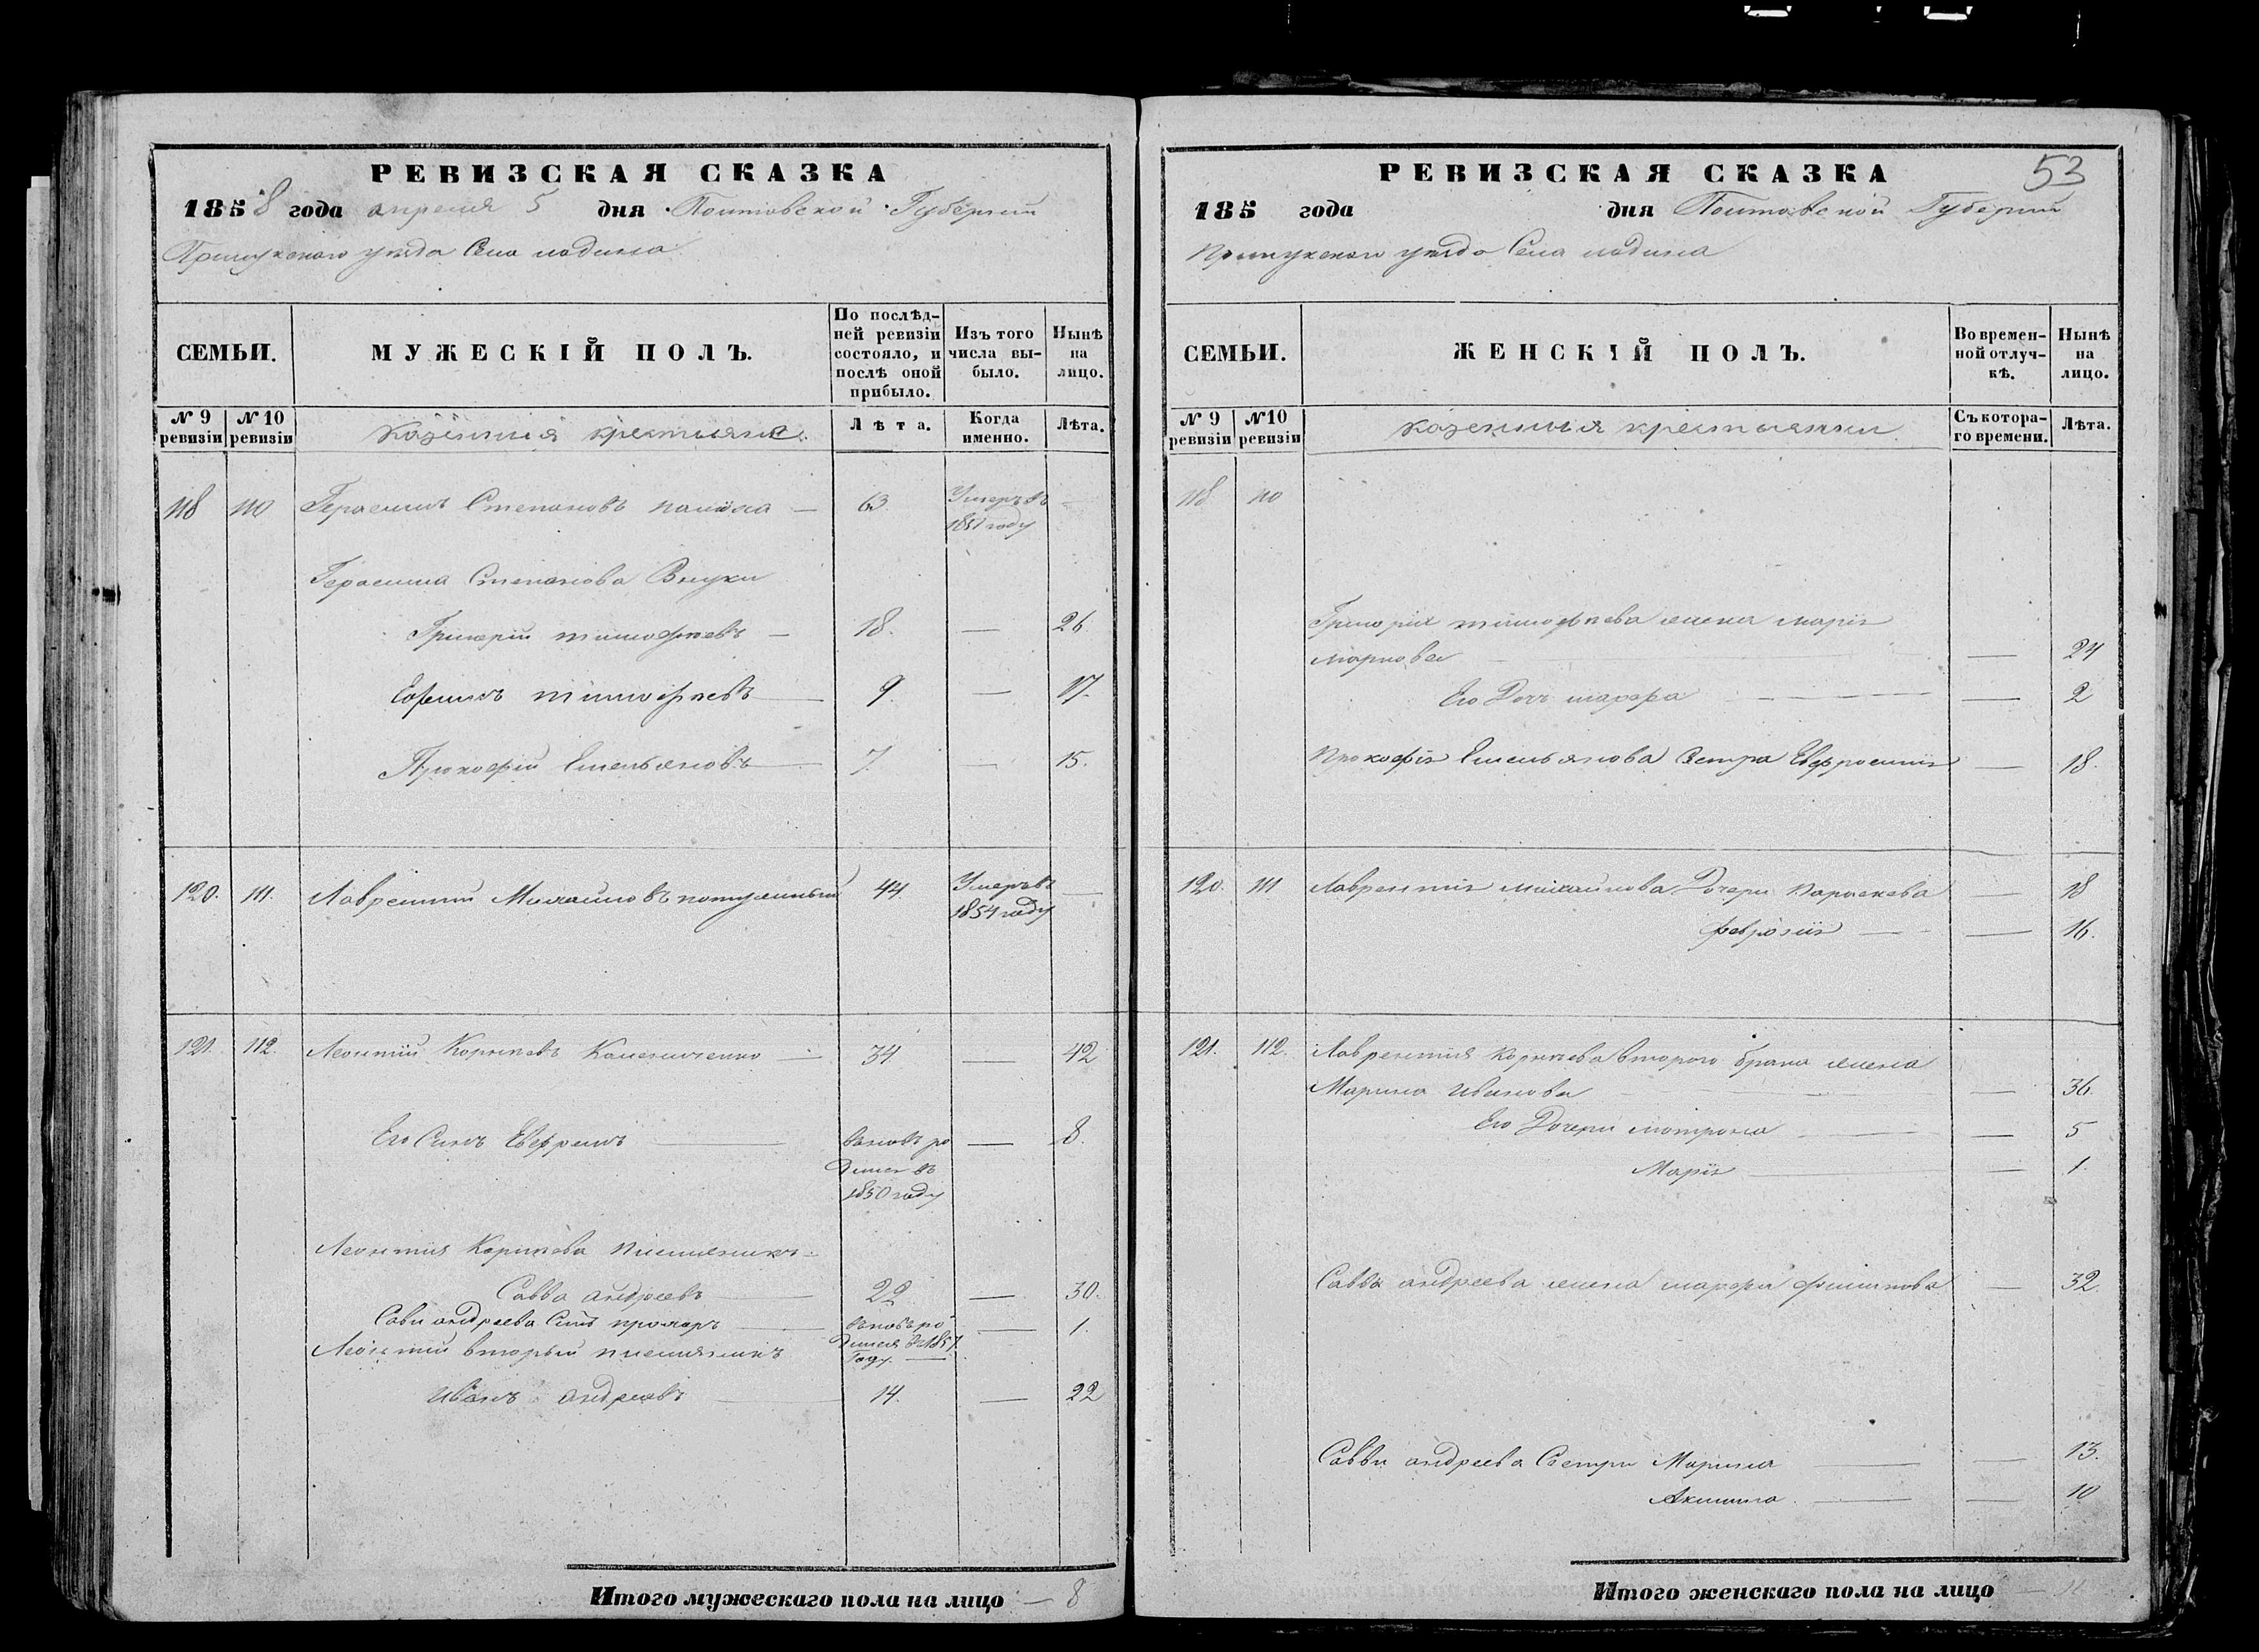 РЕВИЗСКАЯ СКАЗКА
1858 года апреля 5 дня Полтовской Губерніи
Прилукского уѣзда Села ладина
СЕМЬИ.
МУЖЕСКІЙ ПОЛЪ.
По послѣд-
ней ревизіи
состояло, и
послѣ оной
прибыло.
Изъ того
числа вы-
было.
Нынѣ
на
лицо.
№ 9
ревизіи
№ 10
ревизіи
Козенныя крестьяне.
Лѣта.
Когда
именно.
Лѣта.
118 110 Герасимъ Степановъ — 63. Умеръ въ —
1851 году
Герасима Степанова Внуки
Григорій тимофѣевъ — 18. — 26
Ефимъ тимофѣевъ — 9. — 17.
Прокофій Емельяновъ — 7. — 15.
120. 111. Лаврентій Михайловъ 44. Умеръ въ —
1854 году
121. 112. Леонтій Корнѣевъ Колесниченко — 34. — 42
Его Сынъ Евфремъ — вновь ро — 8.
дился въ
1850 году
Леонтия Корнѣева племянникъ —
Савва андреевъ — 22 — 30.
Сави андреева Синъ прохоръ — вновь ро — 1.
Леонтия вторый племянникъ дился в 1857
Году —
иванъ андреевъ — 14. — 22
Итого мужескаго пола на лицо — 8
РЕВИЗСКАЯ СКАЗКА
53
185 года дня Полтовской Губерніи
Прилукского уѣзда Села ладина
СЕМЬИ.
ЖЕНСКІЙ ПОЛЪ.
Во времен-
ной отлуч-
кѣ.
Нынѣ
на
лицо.
№ 9
ревизіи
№ 10
ревизіи
козенныя крестьянки
Съ котора-
го времени.
Лѣта.
118 110
Григорія тимофѣева жена марія
маркова — 24
Его Дочъ марфа — 2
Прокофія Емельянова Сестра Евфросинія — 18.
120. 111 Лаврентія михайлова Дочери Параскева — 18
феврония — 16.
121. 112. Лаврентия корнѣева второго брака жена
Марина иванова — 36.
Его Дочери мотрона — 5
Марія — 1.
Саввы андреева жена марфа филипова — 32.
Савви андреева Сестри Марина — 13.
Акилина — 10
Итого женскаго пола на лицо — 11